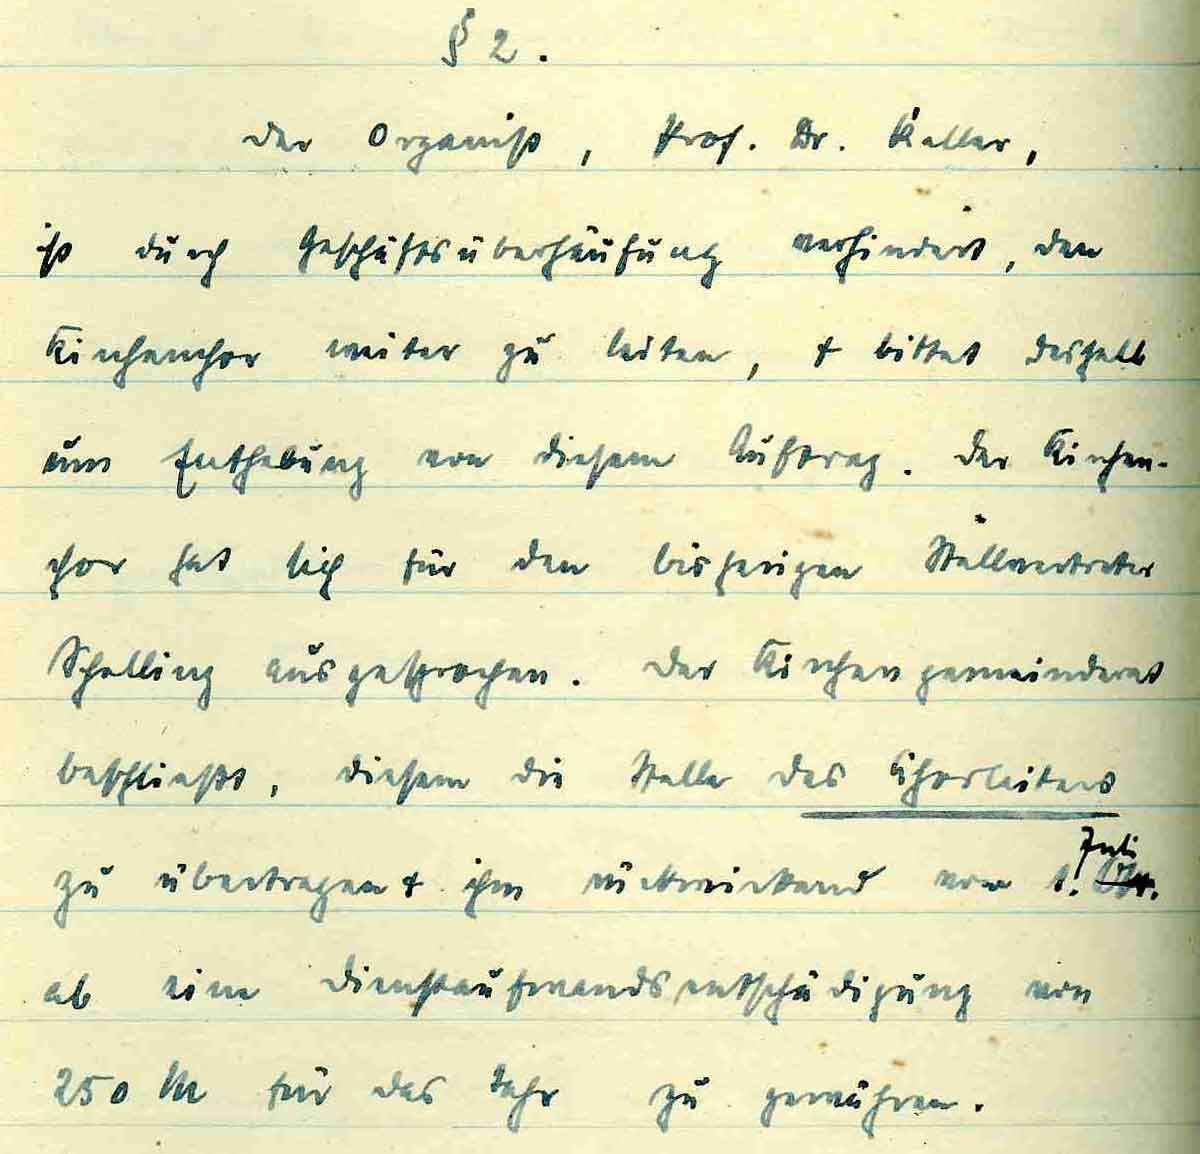 § 2.
Der Organist, Prof. Dr. Keller,
ist durch Geschäftsüberhäufung verhindert, den
Kirchenchor weiter zu leiten, + bittet deshalb
um Enthebung von diesem Auftrag. Der Kirchen-
chor hat sich für den bisherigen Stellvertreter
Schelling ausgesprochen. Der Kirchengemeinderat
beschließt, diesem die Stelle des Chorleiters
zu übertragen + ihm rückwirkend vom 1. Juli
ab eine Dienstaufwandsentschädigung von
250 M für das Jahr zu gewähren.